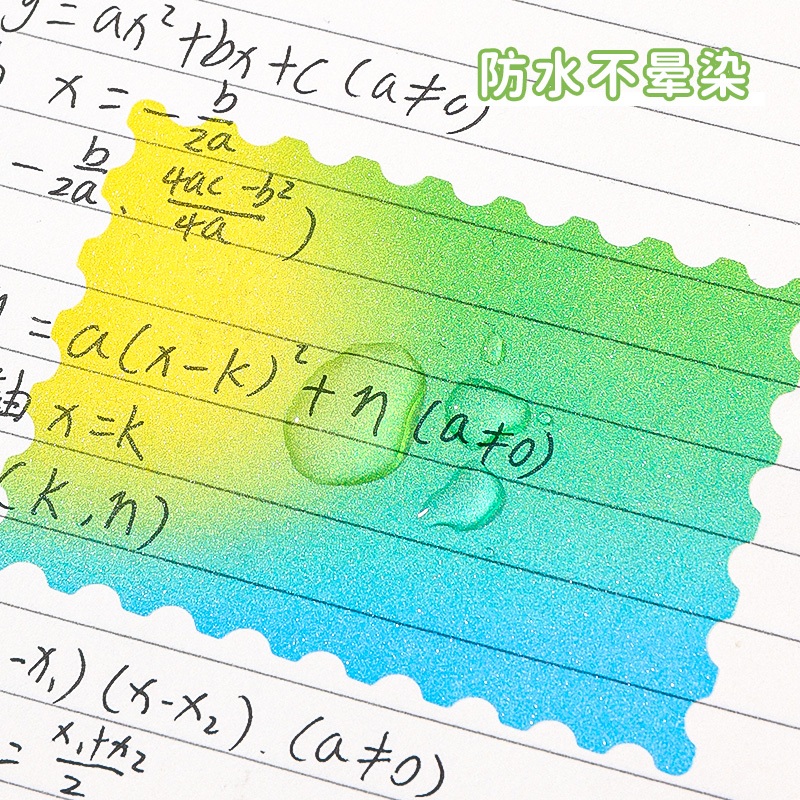 y=ax²+bx+c (a≠0)
防水不晕染
x=-b/2a
-b/2a、(4ac-b²)/4a)
=a(x-k)²+n(a≠0)
轴 x=k
(k,n)
-x₁)(x-x₂).(a≠0)
=(x₁+x₂)/2